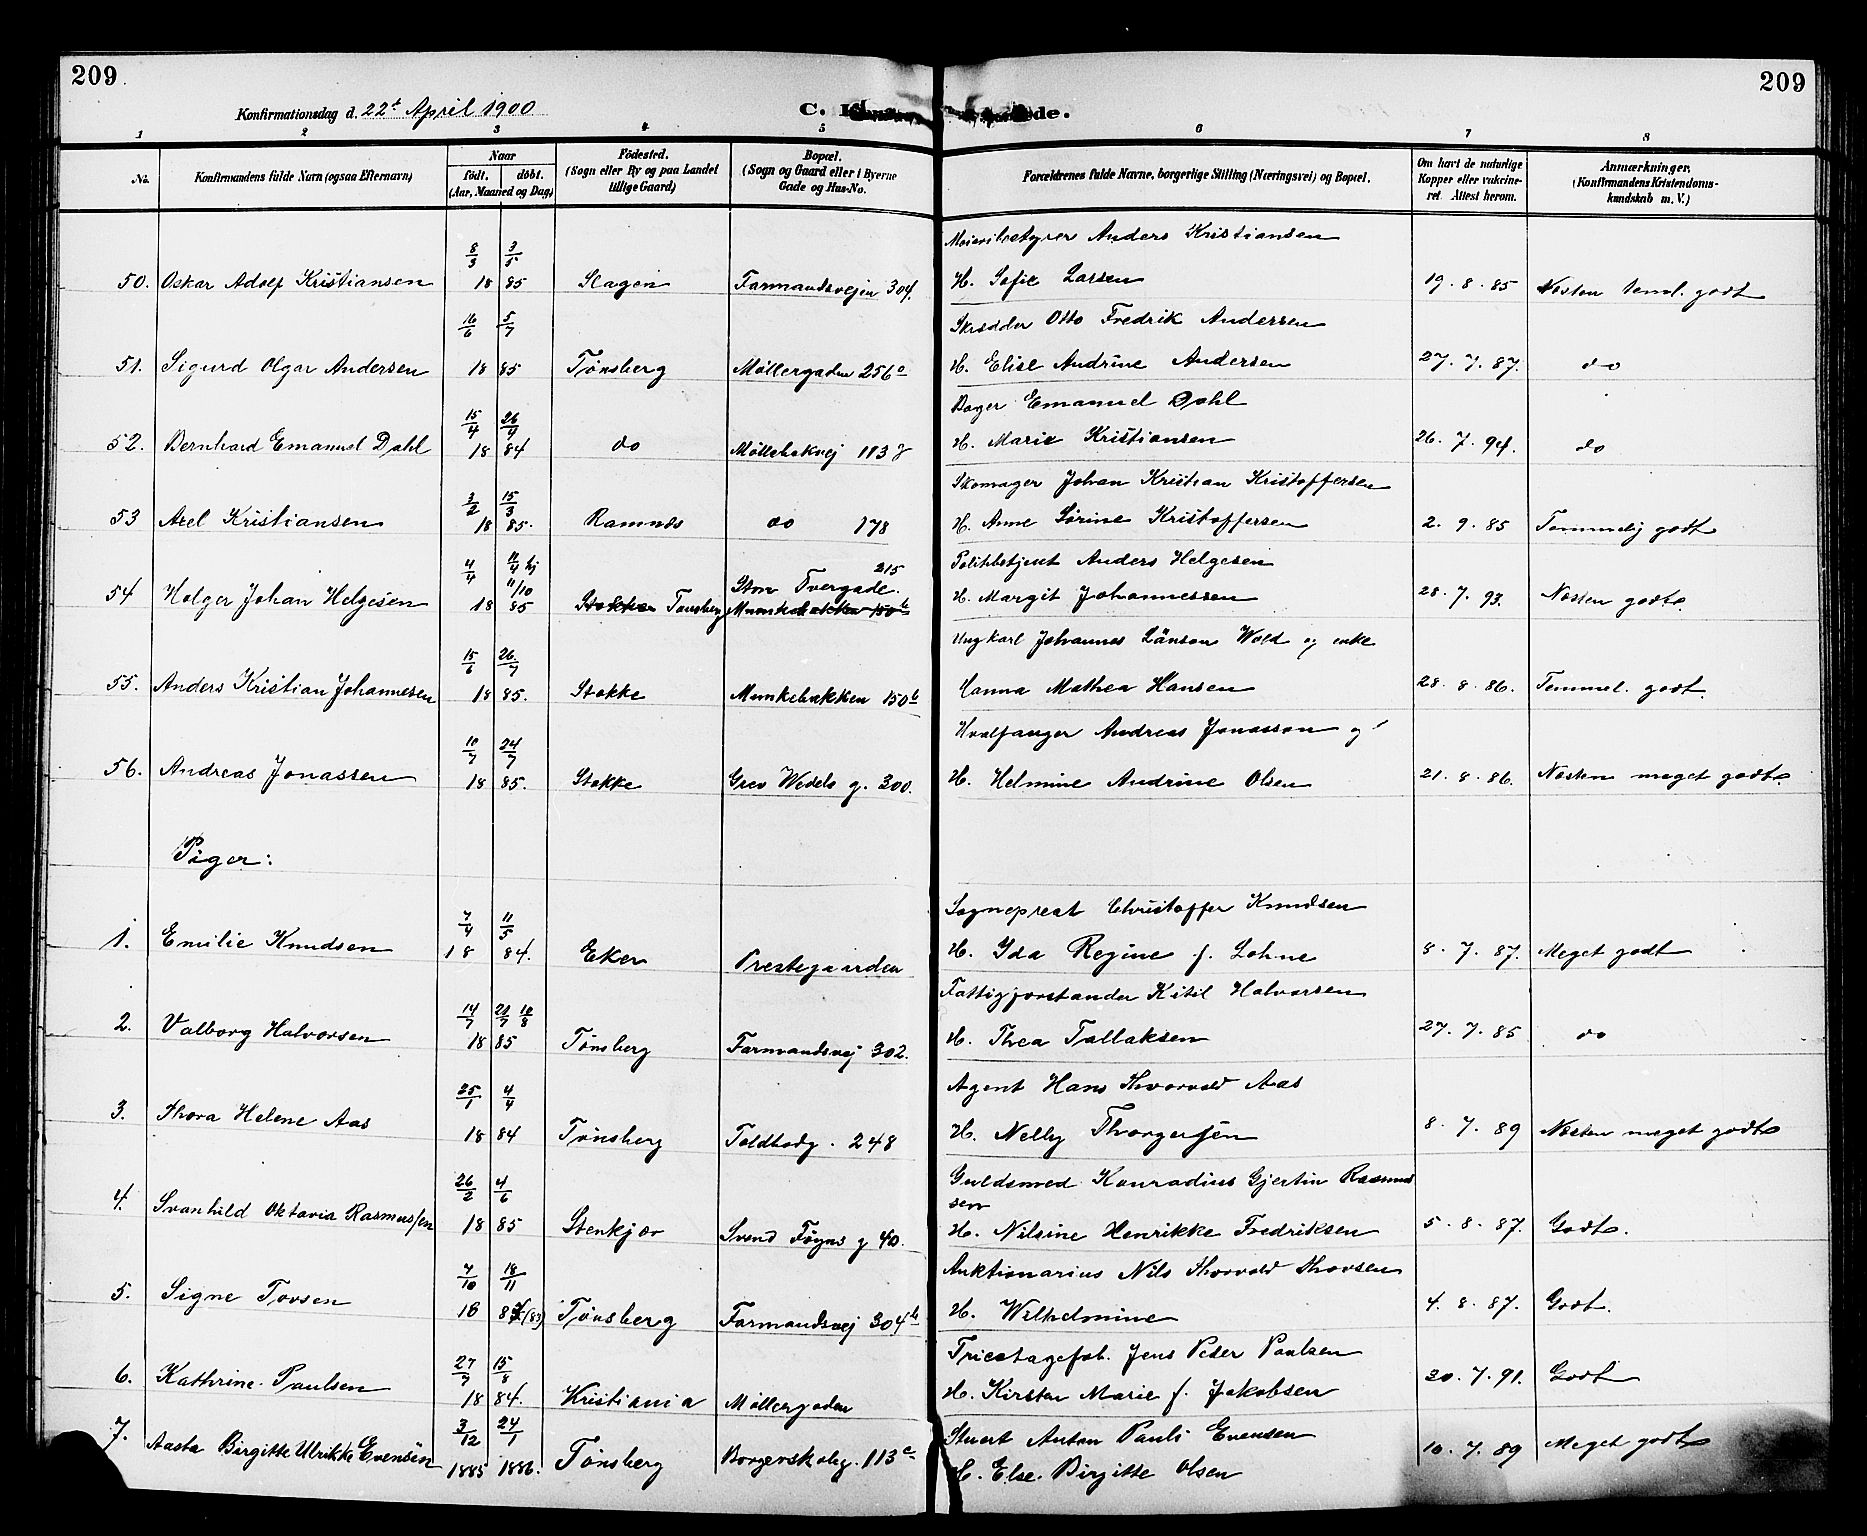 209
209
Konfirmationsdag d. 22de April 1900
C. K
de.
1 2 3 4 5 6 7 8
No.
Konfirmandens fulde Navn (ogsaa Efternavn)
Naar
født. døbt.
(Aar, Maaned og Dag)
Fødested.
(Sogn eller By og paa Landet
tillige Gaard)
Bopæl.
(Sogn og Gaard eller i Byerne
Gade og Hus-No.
Forældrenes fulde Navne, borgerlige Stilling (Næringsvei) og Bopæl.
Om havt de naturlige
Kopper eller vakcine-
ret. Attest herom.
Anmærkninger.
(Konfirmandens Kristendoms-
kundskab m. V.)
8/3 3/5 Meieribestyrer Anders Kristiansen
50. Oskar Adolf Kristiansen 18 85 Slagen Farmandsvejen 304. H. Sofie Larsen 19. 8. 85 Næsten teml. godt
16/6 5/7 Skrædder Otto Fredrik Andersen
51. Sigurd Olgar Andersen 18 85 Tønsberg Møllergaden 256 H. Elise Andrine Andersen 27. 7. 87. do
15/4 26/4 Bager Emanuel Dahl
52. Bernhard Emanuel Dahl 18 84 do Møllebakvej 113 H. Marie Kristiansen 26. 7. 94. do
3/2 15/3 Skomager Johan Kristian Kristoffersen
53 Axel Kristiansen 18 85. Ramnes do 178 H. Anne Sørine Kristoffersen 2. 9. 85 Temmelig godt
4/4 11/4 hj 215 Politibetjent Anders Helgesen
11/10 Stm Tvergade.
54 Holger Johan Helgesen 18 85 Stokke Tønsberg Munkebakken 150b H. Margit Johannessen 28. 7. 93. Næsten godt.
15/6 26/7 Ungkarl Johannes Wold og enke
55. Anders Kristian Johannesen 18 85. Stokke Munkebakken 150b Hanna Mathea Hansen 28. 8. 86. Temmel. godt.
10/7 24/7 Hvalfanger Andreas Jonassen og
56. Andreas Jonassen 18 85. Stokke Grev Wedels g. 300. H. Helmine Andrine Olsen 21. 8. 86. Næsten meget godt.
Piger:
7/4 11/5 Sogneprest Christoffer Knudsen
1. Emilie Knudsen 18 84. Eker Prestegaarden H. Ida Regine f. Lohne 8. 7. 87. Meget godt
14/7 10/8 Fattigforstander Kitil Halvorsen
2. Valborg Halvorsen 18 85 Tønsberg Farmandsvej 302. H. Thea Tallaksen 27. 7. 85 do
25/1 4/4 Agent Hans Thorvald Aas
3. Thora Helene Aas 18 84 Tønsberg Toldbodg. 248 H. Nelly Thorgersen 8. 7. 89 Næsten meget godt
26/2 4/6 Guldsmed Konradius Gjertin Rasmus
sen
4. Svanhild Oktavia Rasmussen 18 85 Stenkjær Svend Føyns g 40. H. Nilsine Henrikke Fredriksen 5. 8. 87. Godt.
7/10 18/11 Auktionarius Nils Thorvald Thorsen
5. Signe Torsen 18 (83) Tønsberg Farmandsvej 304b H. Wilhelmine 4. 8. 87. Godt.
27/7 15/8 Tricotagefab. Jens Peter Paulsen
6. Kathrine Paulsen 18 84. Kristiania Møllergaden H. Kirsten Marie f. Jakobsen 20. 7. 91. Godt
3/12 24/1 Stuert Anton Pauli Evensen
7. Aasta Birgitte Ulrikke Evensen 1885 1886. Tønsberg Borgerskoleg. 113c H. Else Birgitte Olsen 10. 7. 89 Meget godt